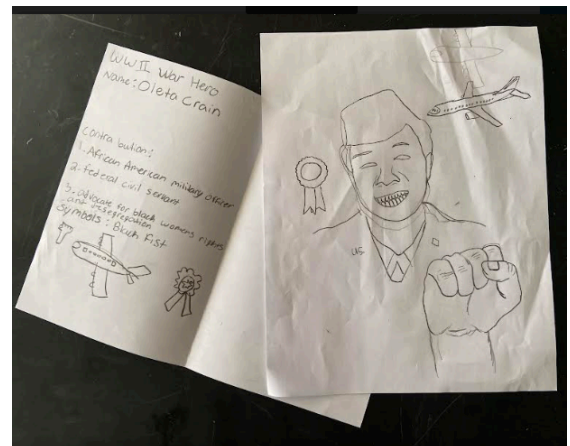 WWII War Hero
Name: Oleta Crain
Contra bution:
1. African American military officer
2. Federal Civil servant
3. advocate for black womens rights
and desegregation
Symbols: Black Fist
US